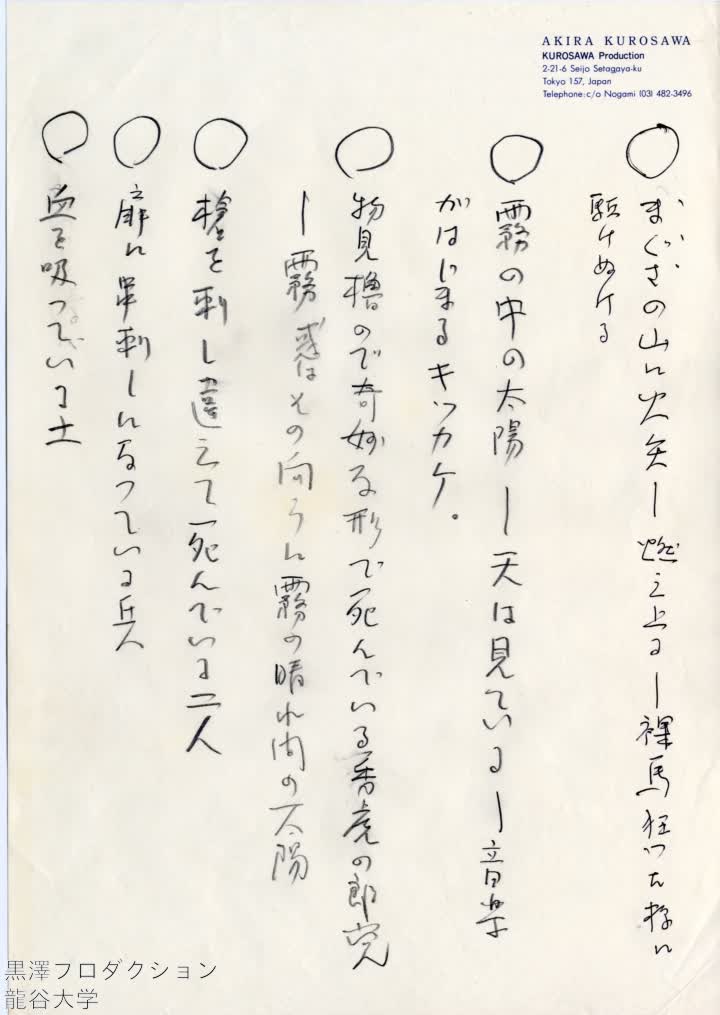 AKIRA KUROSAWA
KUROSAWA Production
2-21-6 Seijo Setagaya-ku
Tokyo 157, Japan
Telephone:c/o Nogami (03) 482-3496
○ まぐさの山に火矢ー燃え上るー裸馬狂つた様に
駈けぬける
○ 霧の中の太陽ー天は見ているー音楽
がはじまるキッカケ。
○ 物見櫓ので奇妙な形で死んでいる番虎の郎党
ー霧 或はその向うに霧の晴れ間の太陽
○ 槍を刺し違えて死んでいる二人
○ 扉に串刺しになっている兵
○ 血を吸っている土
黒澤プロダクション
龍谷大学